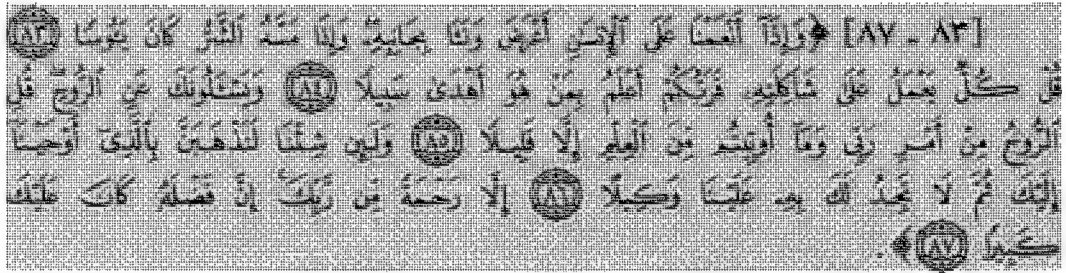 [٨٣ - ٨٧] ﴿وَإِذَآ أَنْعَمْنَا عَلَى ٱلْإِنسَٰنِ أَعْرَضَ وَنَـَٔا بِجَانِبِهِۦ وَإِذَا مَسَّهُ ٱلشَّرُّ كَانَ يَـُٔوسًا ﴿٨٣﴾
قُلْ كُلٌّ يَعْمَلُ عَلَىٰ شَاكِلَتِهِۦ فَرَبُّكُمْ أَعْلَمُ بِمَنْ هُوَ أَهْدَىٰ سَبِيلًا ﴿٨٤﴾ وَيَسْـَٔلُونَكَ عَنِ ٱلرُّوحِ قُلِ
ٱلرُّوحُ مِنْ أَمْرِ رَبِّى وَمَآ أُوتِيتُم مِّنَ ٱلْعِلْمِ إِلَّا قَلِيلًا ﴿٨٥﴾ وَلَئِن شِئْنَا لَنَذْهَبَنَّ بِٱلَّذِىٓ أَوْحَيْنَآ
إِلَيْكَ ثُمَّ لَا تَجِدُ لَكَ بِهِۦ عَلَيْنَا وَكِيلًا ﴿٨٦﴾ إِلَّا رَحْمَةً مِّن رَّبِّكَ إِنَّ فَضْلَهُۥ كَانَ عَلَيْكَ
كَبِيرًا ﴿٨٧﴾﴾.